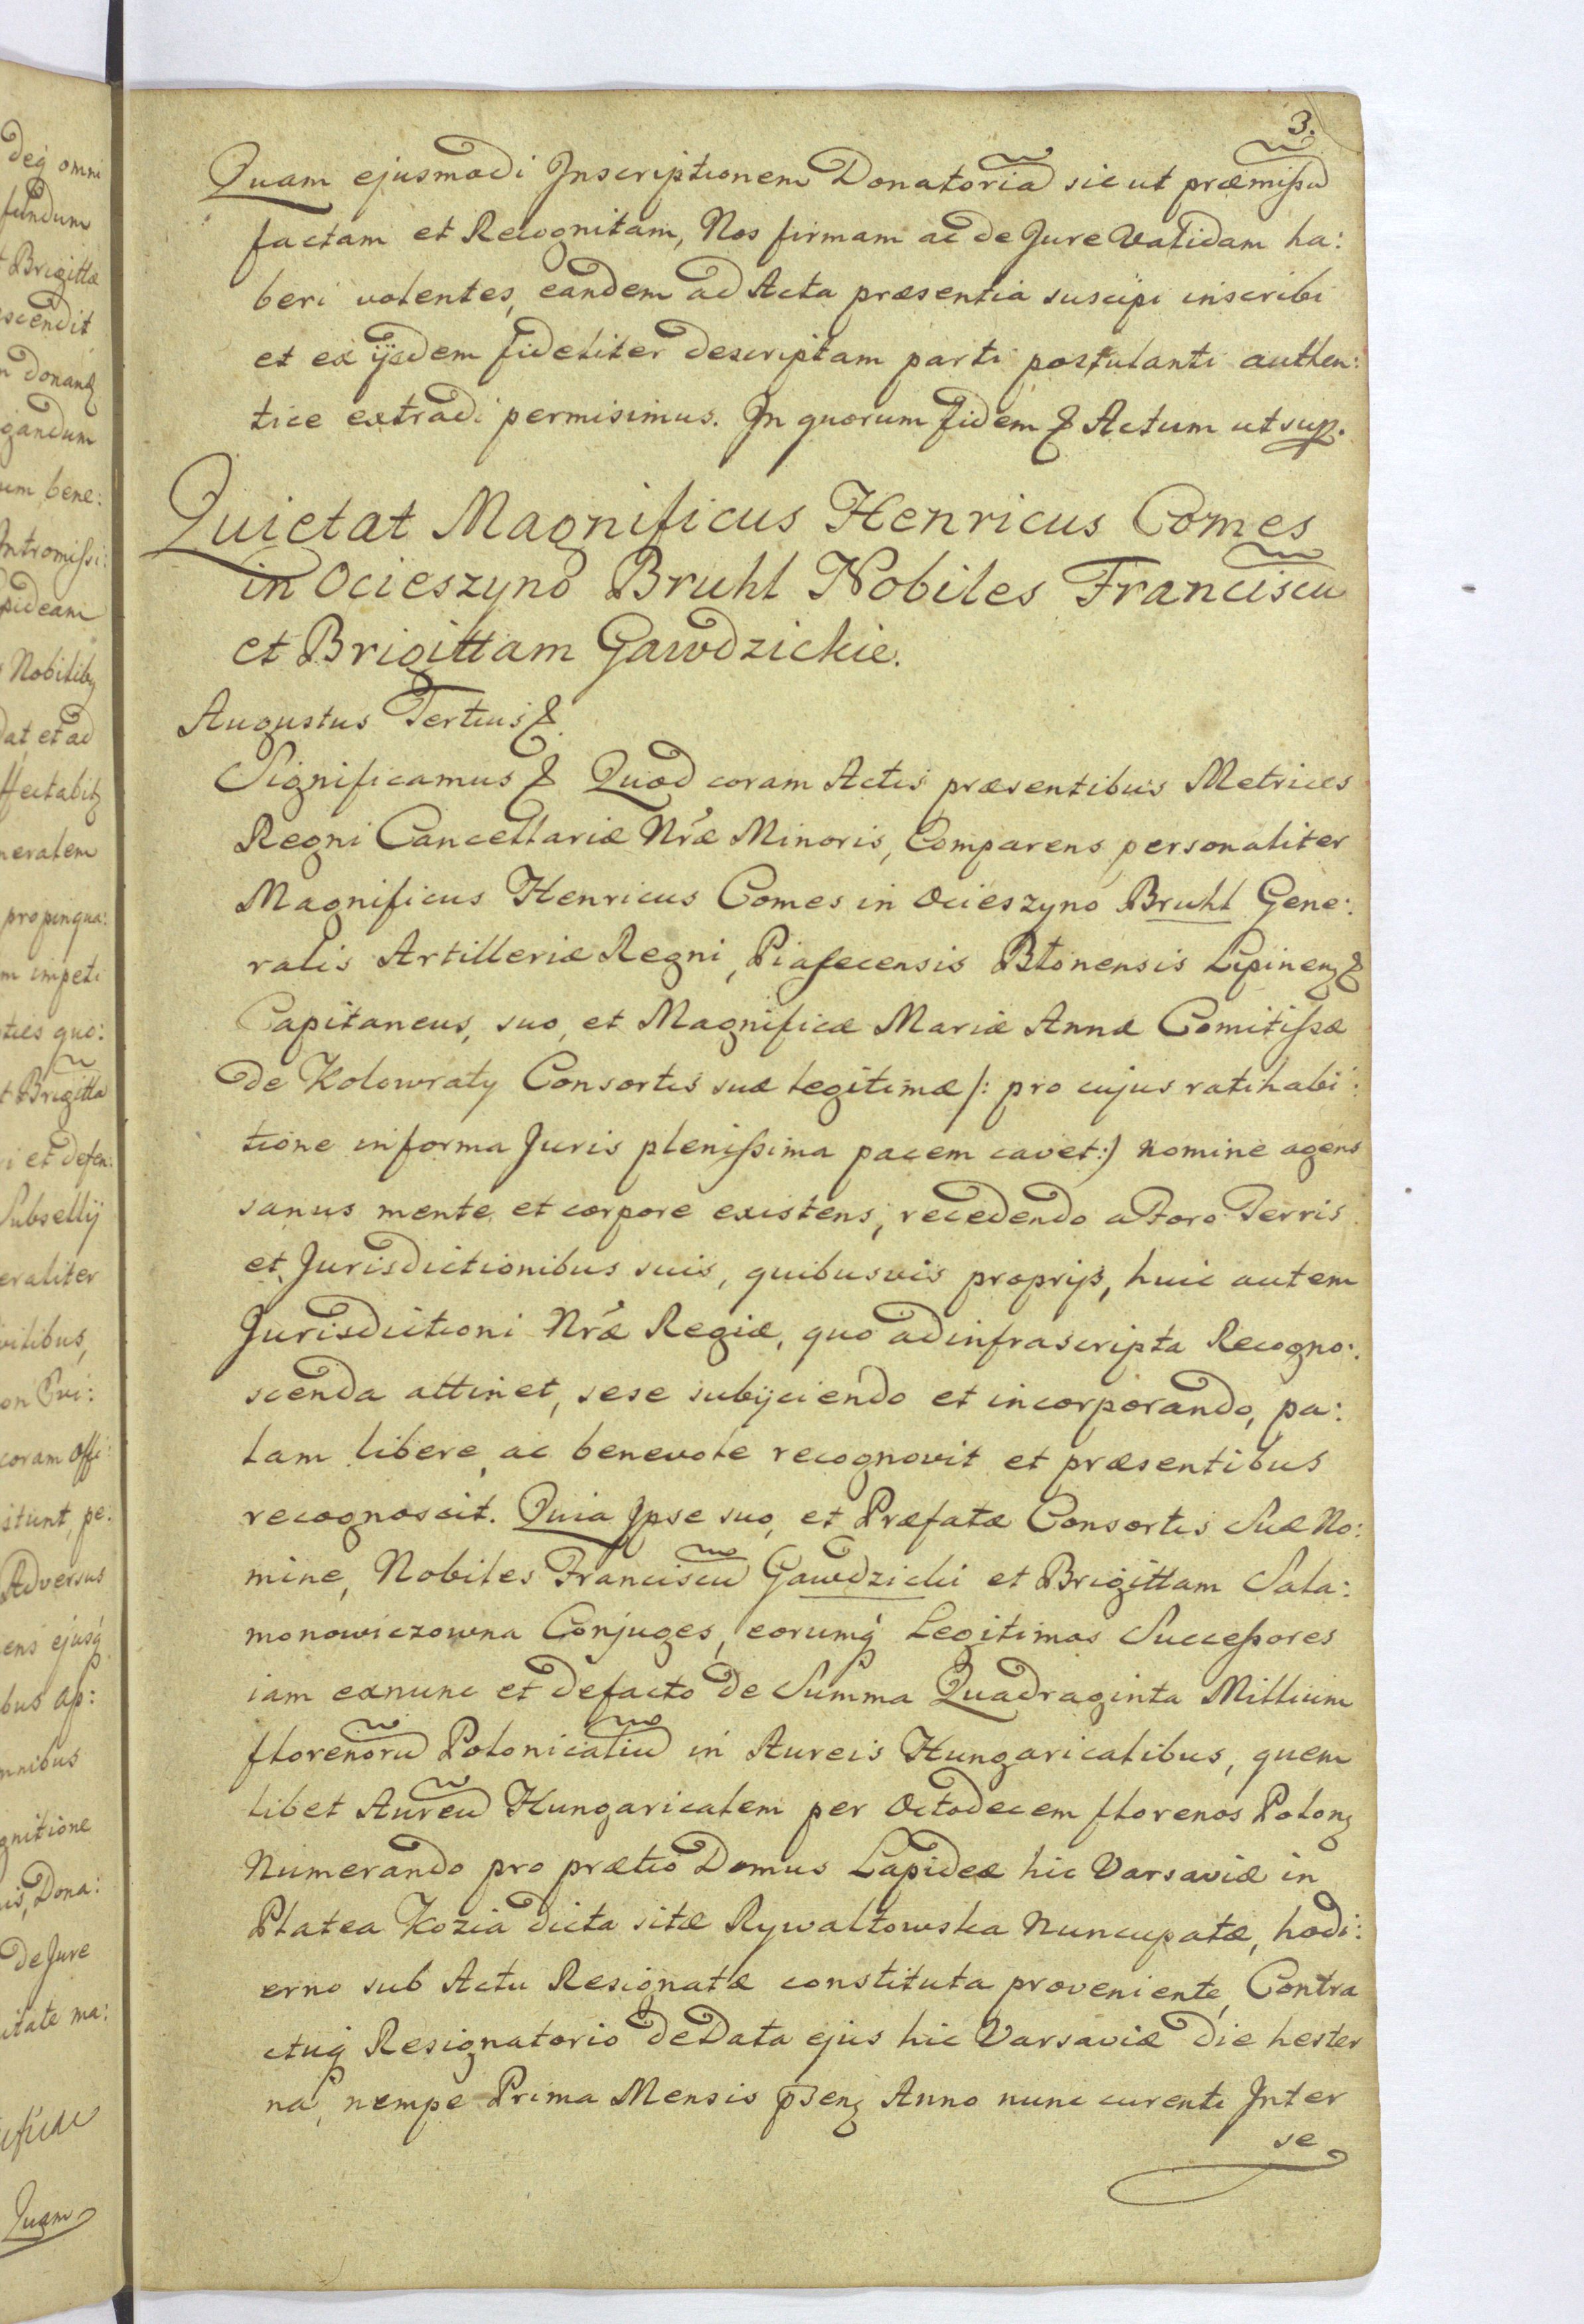 deq omni
fundum
t Brigittæ
scendit
n donand
gandum
um bene:
Intromissi:
pideam
Nobilibq
dat et ad
ffectabit
neralem
propinqua:
m impeti
ties quo:
t Brigitta
i et defen:
Subsellij
eraliter
vilibus,
coram Offi:
istunt, pe:
Adversus
ens ejusq
bus ap:
mnibus
gnitione
is, Dona:
De Jure
itate ma:
Quam
3.
Quam ejusmodi Inscriptionem Donatoria sic ut præmissu
factam et Recognitam, Nos firmam ac de Jure Validam ha:
beri volentes, eandem ad Acta præsentia suscipi inscribi
et ex ijsdem fideliter descriptam parti postulanti authen:
tice extradi permisimus. In quorum fidem & Actum ut sup.
Quietat Magnificus Henricus Comes
in Ocieszyno Bruhl Nobiles Franciscu
et Brigittam Gawdzickie.
Augustus Tertius &
Significamus & Quod coram Actis præsentibus Metrices
Regni Cancellariæ Nræ Minoris, Comparens personaliter
Magnificus Henricus Comes in Ocieszyno Bruhl Gene:
ralis Artilleriæ Regni, Piasecensis Błonensis Lipinenz &
Capitaneus, suo, et Magnificæ Mariæ Annæ Comitissæ
de Kolowraty Consortis suæ legitimæ /: pro cujus ratihabi:
tione in forma Juris plenissima pacem cavet :/ nomine agens
sanus mente et corpore existens, recedendo a Foro Terris
et Jurisdictionibus suis, quibusvis proprijs, huic autem
Jurisdictioni Nræ Regiæ, quo ad infrascripta Recogno:
scenda attinet, sese subijciendo et incorporando, pa:
lam libere, ac benevole recognovit et præsentibus
recognoscit. Quia Ipse suo, et Præfatæ Consortis Suæ No:
mine, Nobiles Franciscu Gawdzicki et Brigittam Sala:
monowiczowna Conjuges, eorumq Legitimos Successores
iam exnunc et defacto de Summa Quadraginta Millium
florenoru Polonicaliu in Aureis Hungaricalibus, quem
libet Aureu Hungaricalem per Octodecem florenos Polonz
Numerando pro prætio Domus Lapideæ hic Varsaviæ in
Platea Kozia dicta sitæ Rywałtowska Nuncupatæ, hodi:
erno sub Actu Resignatæ constituta proveniente, Contra
ctuq Resignatorio de Data ejus hic Varsaviæ die hester
na, nempe Prima Mensis psenz Anno nunc curenti Inter
se